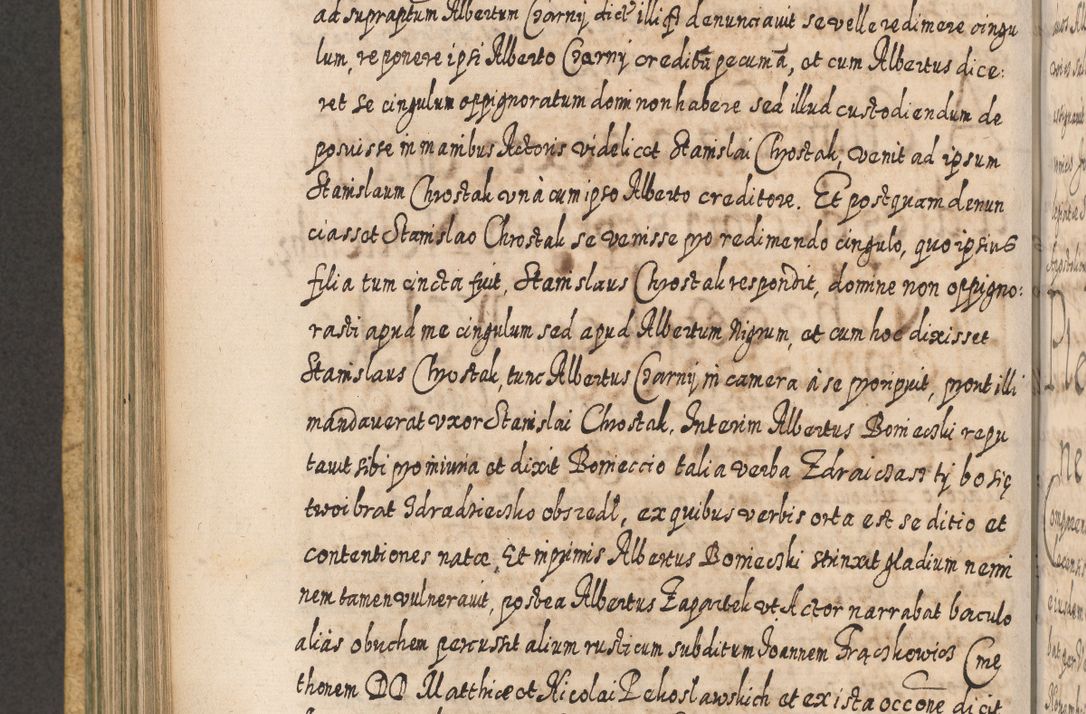 ad supraptum Albertum Czarny dict illi qd denunciavit se velle redimere cingu
lum, reponere ipsi Alberto Czarny creditũ pecumã, et cum Albertus dice:
ret se cingulum oppignoratum domi non habere sed illud custodiendum de
posuisse in manibus Actoris videlicet Stanislai Chrostak, venit ad ipsum
Stanislaum Chrostak vnà cum ipso Alberto creditore. Et postquam denun
ciasset Stanislao Chrostak se venisse pro redimendo cingulo, quo ipsius
filia tum cincta fuit, Stanislaus Chrostak respondit, domine non oppigno:
rasti apud me cingulum sed apud Albertum Nigrum, et cum hoc dixisset
Stanislaus Chrostak, tunc Albertus Czarny in camera à se proripuit, pront illi
mandaverat vxor Stanislai Chrostak. Interim Albertus Borzecki repu
tavit sibi pro iniuria et dixit talia verba Zdraiczasz ty bo się
twoi brat Zdradziecko obszedł, ex quibus verbis orta est seditio et
contentiones natæ, Et inprimis Albertus strinxit gladium nemi
nem tamen vulneravit, postea Albertus Zapartek vt Actor narrabat baculo
alias obuchem percussit alium rusticum subditum Joannem Frąckowicz Cme
thonem DD Matthiæ et Nicolai Pekoslawskich et ex ista occõne dicit